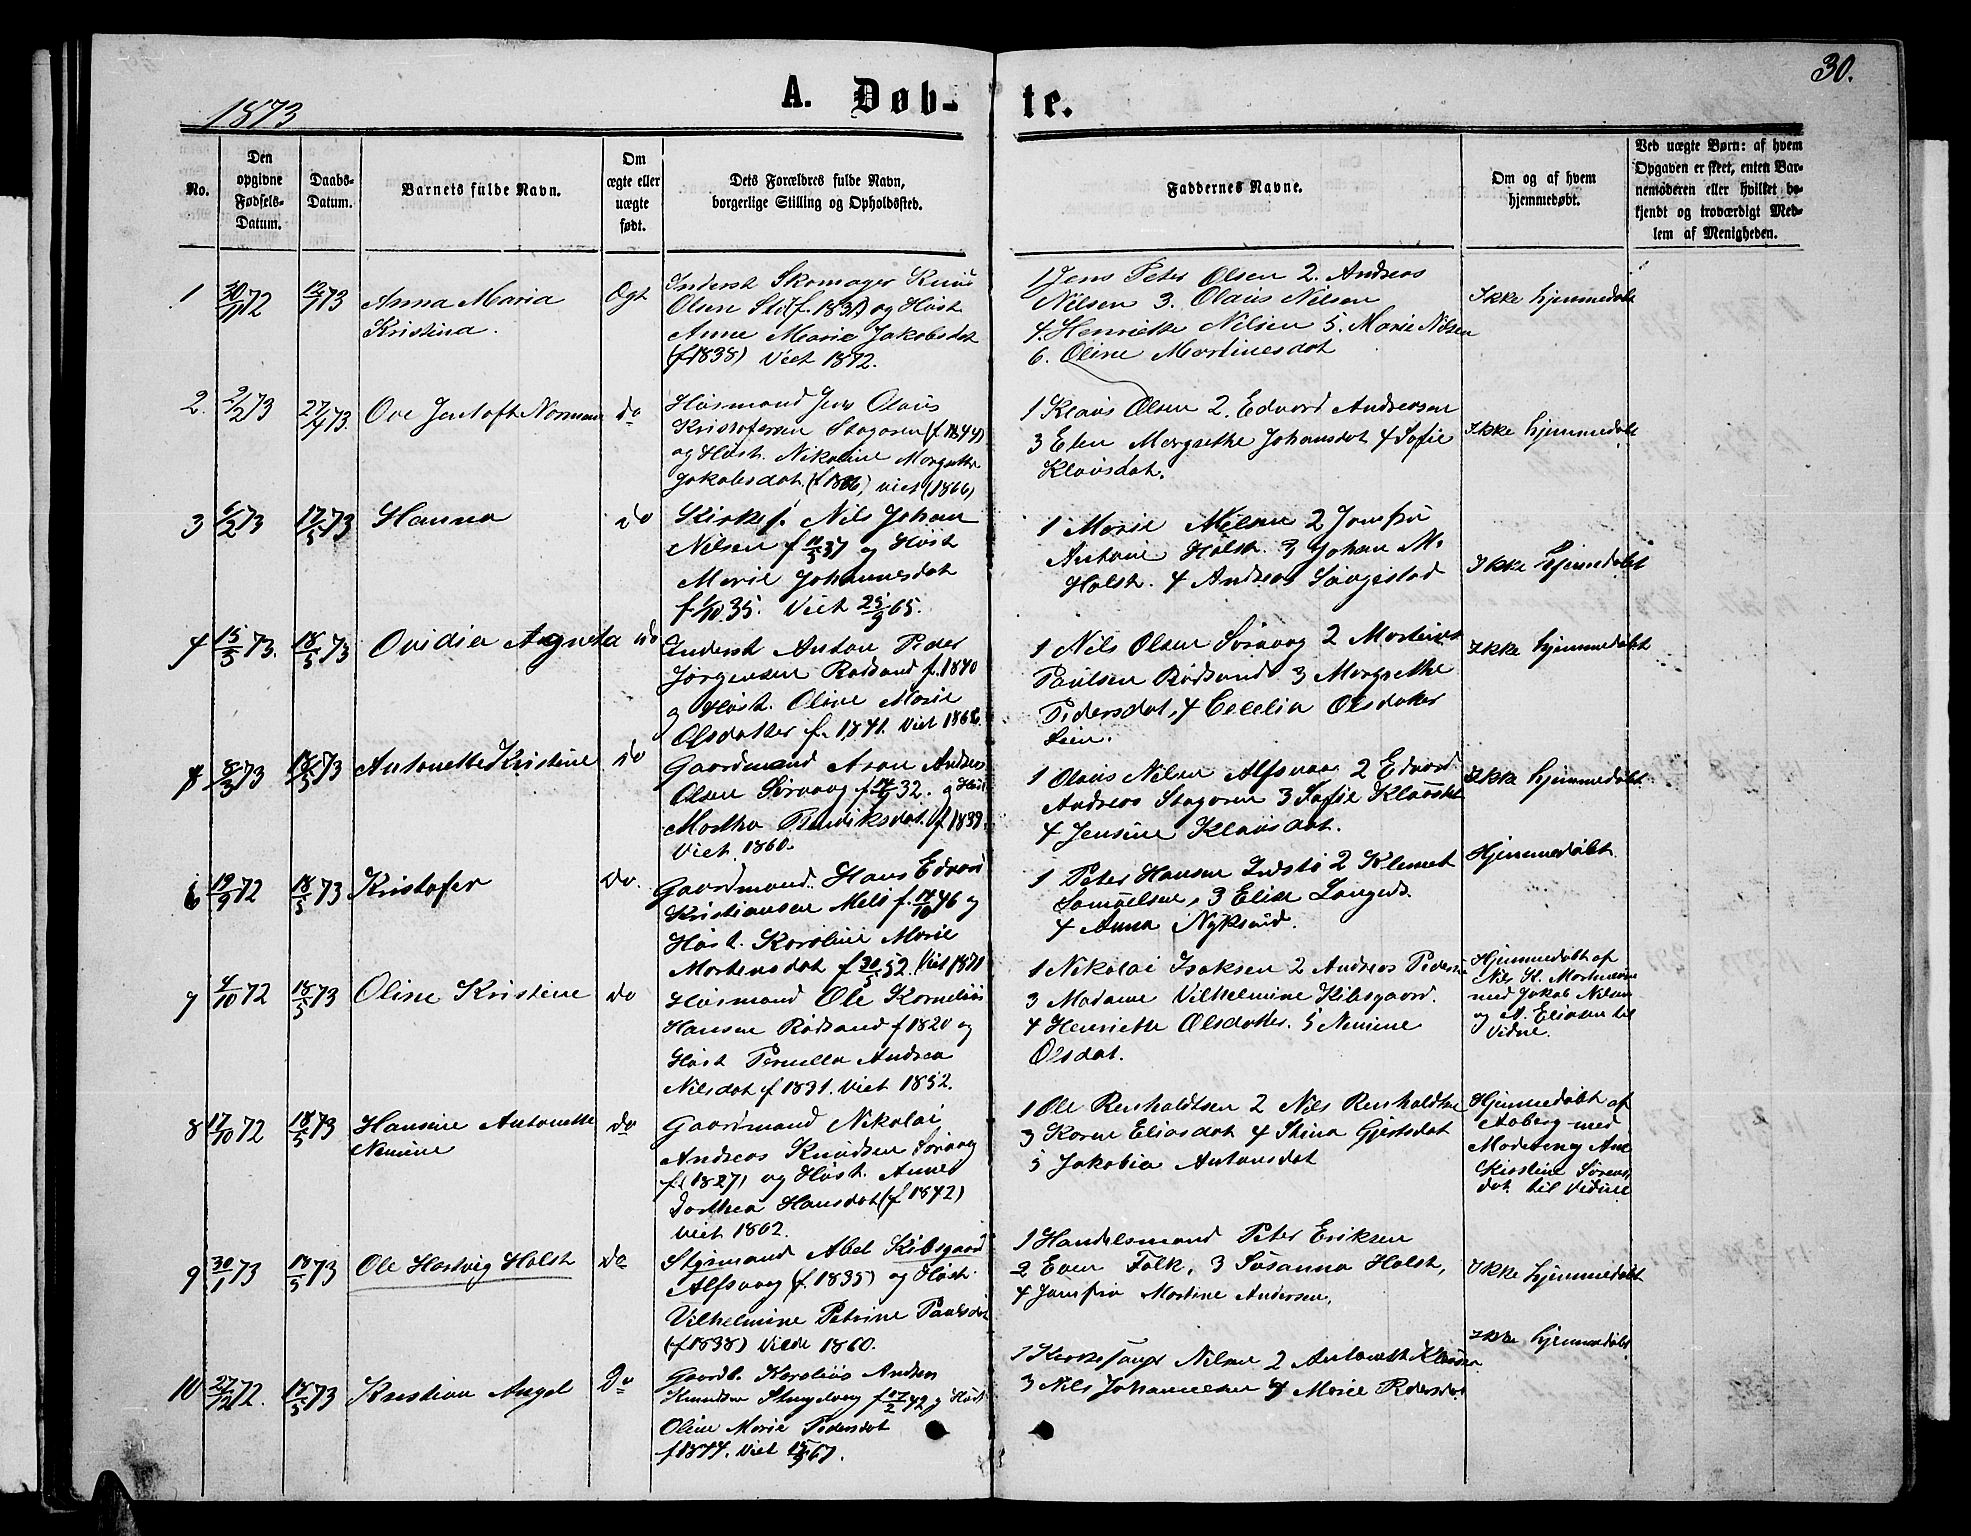 30.
1873
A. Døb- te.
No.
Den opgivne Fødsels-Datum.
Daabs-Datum.
Barnets fulde Navn.
Om ægte eller uægte født.
Dets Forældres fulde Navn, borgerlige Stilling og Opholdssted.
Faddernes Navne.
Om og af hvem hjemmedøbt.
Ved uægte Børn: af hvem Opgaven er skeet, enten Barnemoderen eller hvilket bekjendt og troværdigt Medlem af Menigheden.
1 30/11 72 12/1 73 Anna Maria Kristina. Ægt
Inderst Skomager Knud
Olsen (f. 1831) og Hust
Anne Marie Jakobsdat
(f 1838) Viet 1872.
1 Jens Peter Olsen 2. Andreas
Nilsen 3. Olaus Nilsen
4. Henriette Nilsen 5. Marie Nilsen
6. Oline Martinesdat
Ikke hjemmedøbt
2. 2/2 73 27/4 73 Ove Jentoft Norman do
Husmand Jens Olaus
Kristofersen Stagoren (f. 1844)
og Hust. Nikoline Margrethe
Jakobsdat. viet (1866)
1 Klaus Olsen 2. Edvard Andreasen
3 Elen Margrethe Johansdat 4 Sofie
Klausdat.
Ikke hjemmedøbt.
3 6/2 73 17/5 73 Hanna do
Kirkes. Nils Johan
Nilsen f 11/5 37 og Hust
Marie Johannesdat
f. 1/10 35. Viet 25/9 65.
1 Marie Nilsen 2 Jomfru
Antonie Holst. 3 Johan M.
Holst. 4 Andreas
Ikke hjemmedøbt
4 15/3 73. 18/5 73 Ovidia Agneta do
Inderst Anton Peder
Jørgensen Rødsand f. 1840
og Hust. Oline Marie
Olsdatter f. 1841. Viet
1 Nils Olsen Sørvaag 2 Martinus
Paulsen Rødsand 3 Margrethe
Pedersdat, 4 Cecelia Olsdatter
Ikke hjemmedøbt
8/3 73 18/5 73 Antonette Kristine do
Gaardmand Aron Andreas
Olsen Sørvaag 32. og Hust
Martha Henriksdat. (f 1839.
Viet. 1860.
1 Olaus Nilsen Alfsvaag 2 Edvard
Andreas Stagoren 3 Sofie Klausdat
4 Jensine Klausdat.
Ikke hjemmedøbt
6 19/9 72 18/5 73 Kristofer Do.
Gaardmand. Hans Edvard
Kristiansen f. 46 og
Hust. Karoline Marie
Mortensdat f 30/5 52. Viet 1871
1 Peter Hansen 2 Klemet
Samuelsen, 3 Elise
4 Anna Nyksund.
Hjemmedøbt
7 4/10 72 18/5 73 Oline Kristine do
Husmand Ole Kornelius
Hansen Rødsand f 1820 og
Hust Pernella Andrea
Nilsdat f 1831. Viet 1852.
1 Nikolai Isaksen 2 Andreas Pedersen
3 Madame Vilhelmine Kibsgaard.
4 Henriette Olsdatter. 5 Nemine
Olsdat.
Hjemmedøbt af
Nils H. Mortensen
med Jakob Nilsen
og A. Eliasen til
Vidne.
8 17/10 72 18/5 73 Hansine Antonette Nemine do
Gaardmand Nikolai
Andreas Knudsen Sørvaag
f. (1827) og Hust. Anne
Dorthea Hansdat (f 1842)
viet 1862.
1 Ole Renholdtsen 2 Nils Renholdtsen
3 Karen Eliasdat 4 Stina Gjertsdat
5 Jakobia Antonsdat
Hjemmedøbt af
Aaberg med
Ane
Kirstine Sørens
dat. til Vidne
9 30/1 73 18/5 73 Ole Hartvig Holst Do
Styrmand Abel Kibsgaard
Alfsvaag (f. 1835) og Hust.
Vilhelmine Petrine Paulsdat
(f 1838) Viede 1860.
1 Handelsmand Peter Eriksen
2 Even Falk, 3 Susanna Holst,
4 Jomfru Martine Andersen.
Ikke hjemmedøbt
10 27/12 72. 18/5 73 Kristian Angel Do
Gaardb. Karelius
f 42 og Hust
Oline Marie Pedersdat
f 1844. Viet 67.
1 Kirkesanger Nilsen 2
3 Nils Johannesen 4 Marie Pedersdat
Ikke hjemmedøbt.